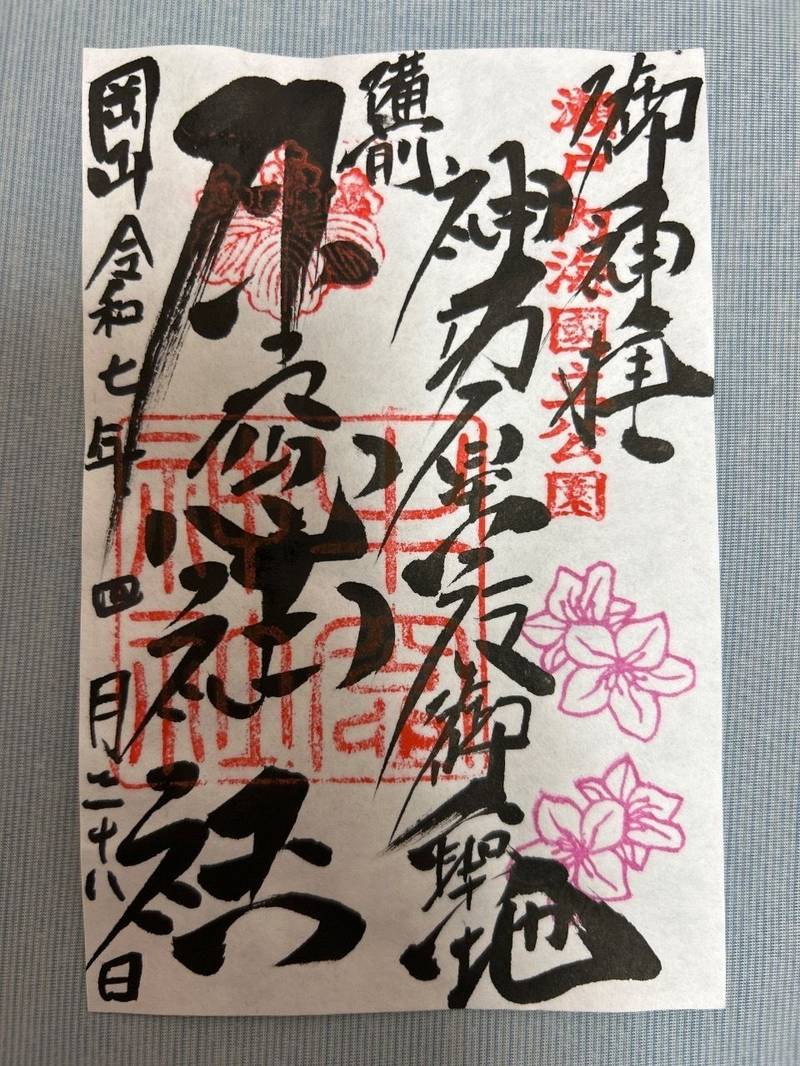 御神拝
瀬戸内海國立公園
神功皇后御聖地
備前
牛窓神社
岡山 令和七年 四月二十八日